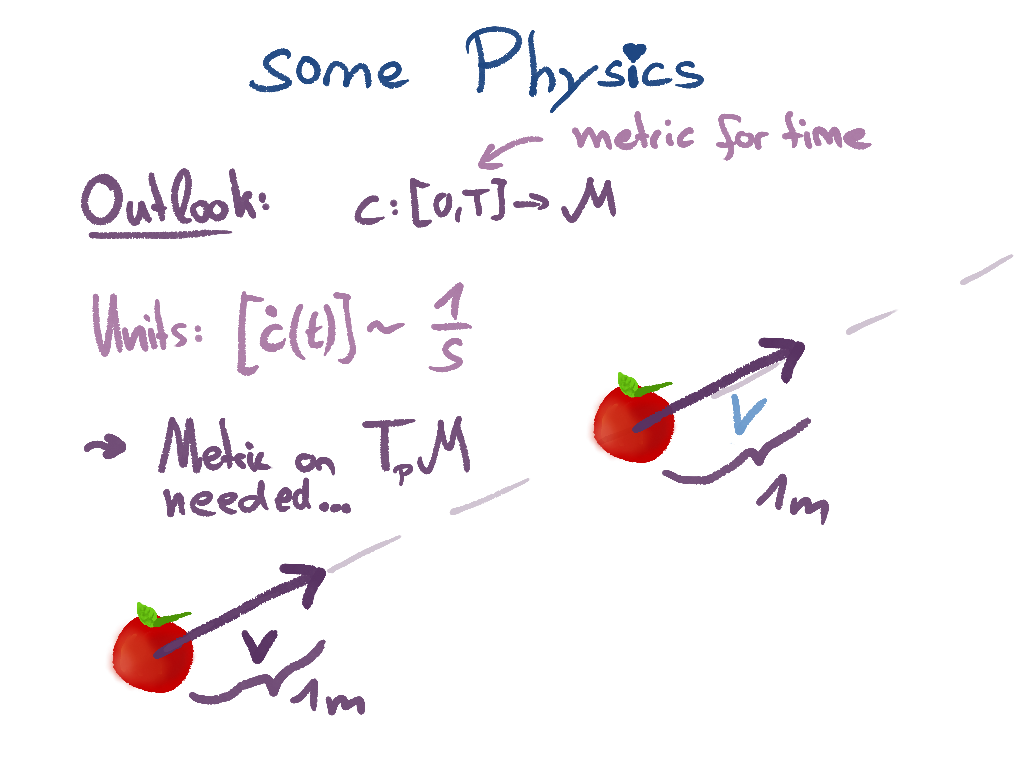 Some Physics
metric for time
Outlook: c: [0,T] → M
Units: [ċ(t)] ~ 1/s
→ Metric on TₚM
needed...
v
1m
v
1m